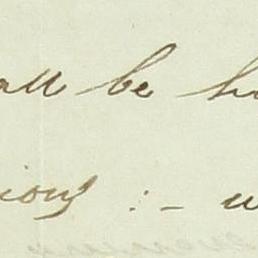 all be h
ions :- w